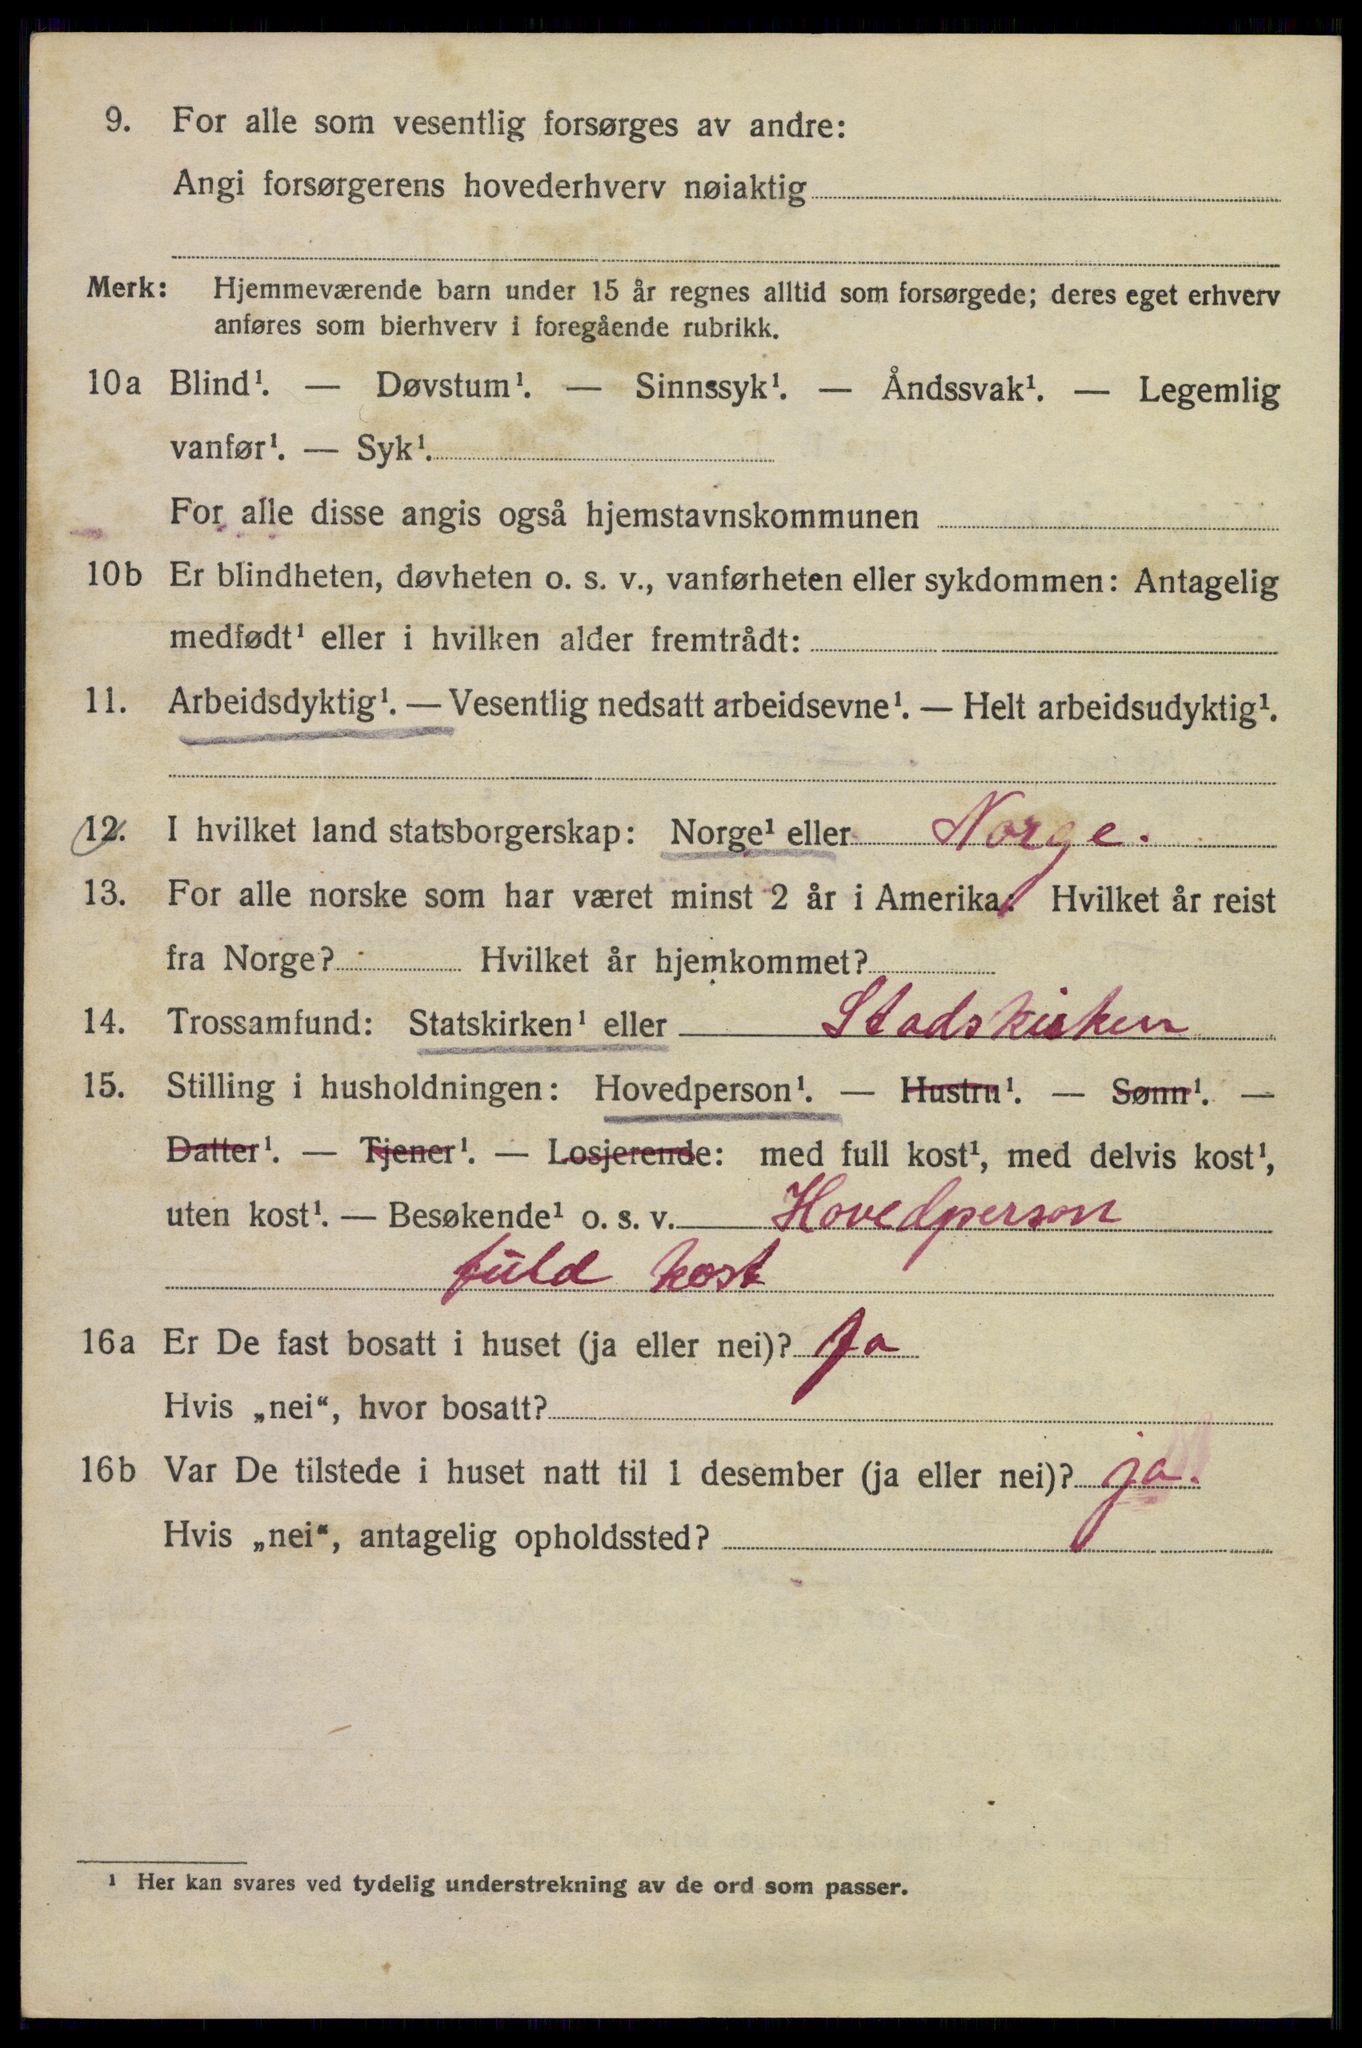 9. For alle som vesentlig forsørges av andre:
Angi forsørgerens hovederhverv nøiaktig
Merk: Hjemmeværende barn under 15 år regnes alltid som forsørgede; deres eget erhverv
anføres som bierhverv i foregående rubrikk.
10a Blind¹. — Døvstum¹. — Sinnssyk¹. — Åndssvak¹. — Legemlig
vanfør¹. — Syk¹.
For alle disse angis også hjemstavnskommunen
10b Er blindheten, døvheten o. s. v., vanførheten eller sykdommen: Antagelig
medfødt¹ eller i hvilken alder fremtrådt:
11. Arbeidsdyktig¹. — Vesentlig nedsatt arbeidsevne¹. — Helt arbeidsudyktig¹.
12. I hvilket land statsborgerskap: Norge¹ eller Norge.
13. For alle norske som har været minst 2 år i Amerika: Hvilket år reist
fra Norge? Hvilket år hjemkommet?
14. Trossamfund: Statskirken¹ eller Stadskirken
15. Stilling i husholdningen: Hovedperson¹. — Hustru¹. — Sønn¹. —
Datter¹. — Tjener¹. — Losjerende: med full kost¹, med delvis kost¹,
uten kost¹. — Besøkende¹ o. s. v. Hovedperson
fuld kost
16a Er De fast bosatt i huset (ja eller nei)? Ja
Hvis „nei“, hvor bosatt?
16b Var De tilstede i huset natt til 1 desember (ja eller nei)? ja.
Hvis „nei“, antagelig opholdssted?
¹ Her kan svares ved tydelig understrekning av de ord som passer.